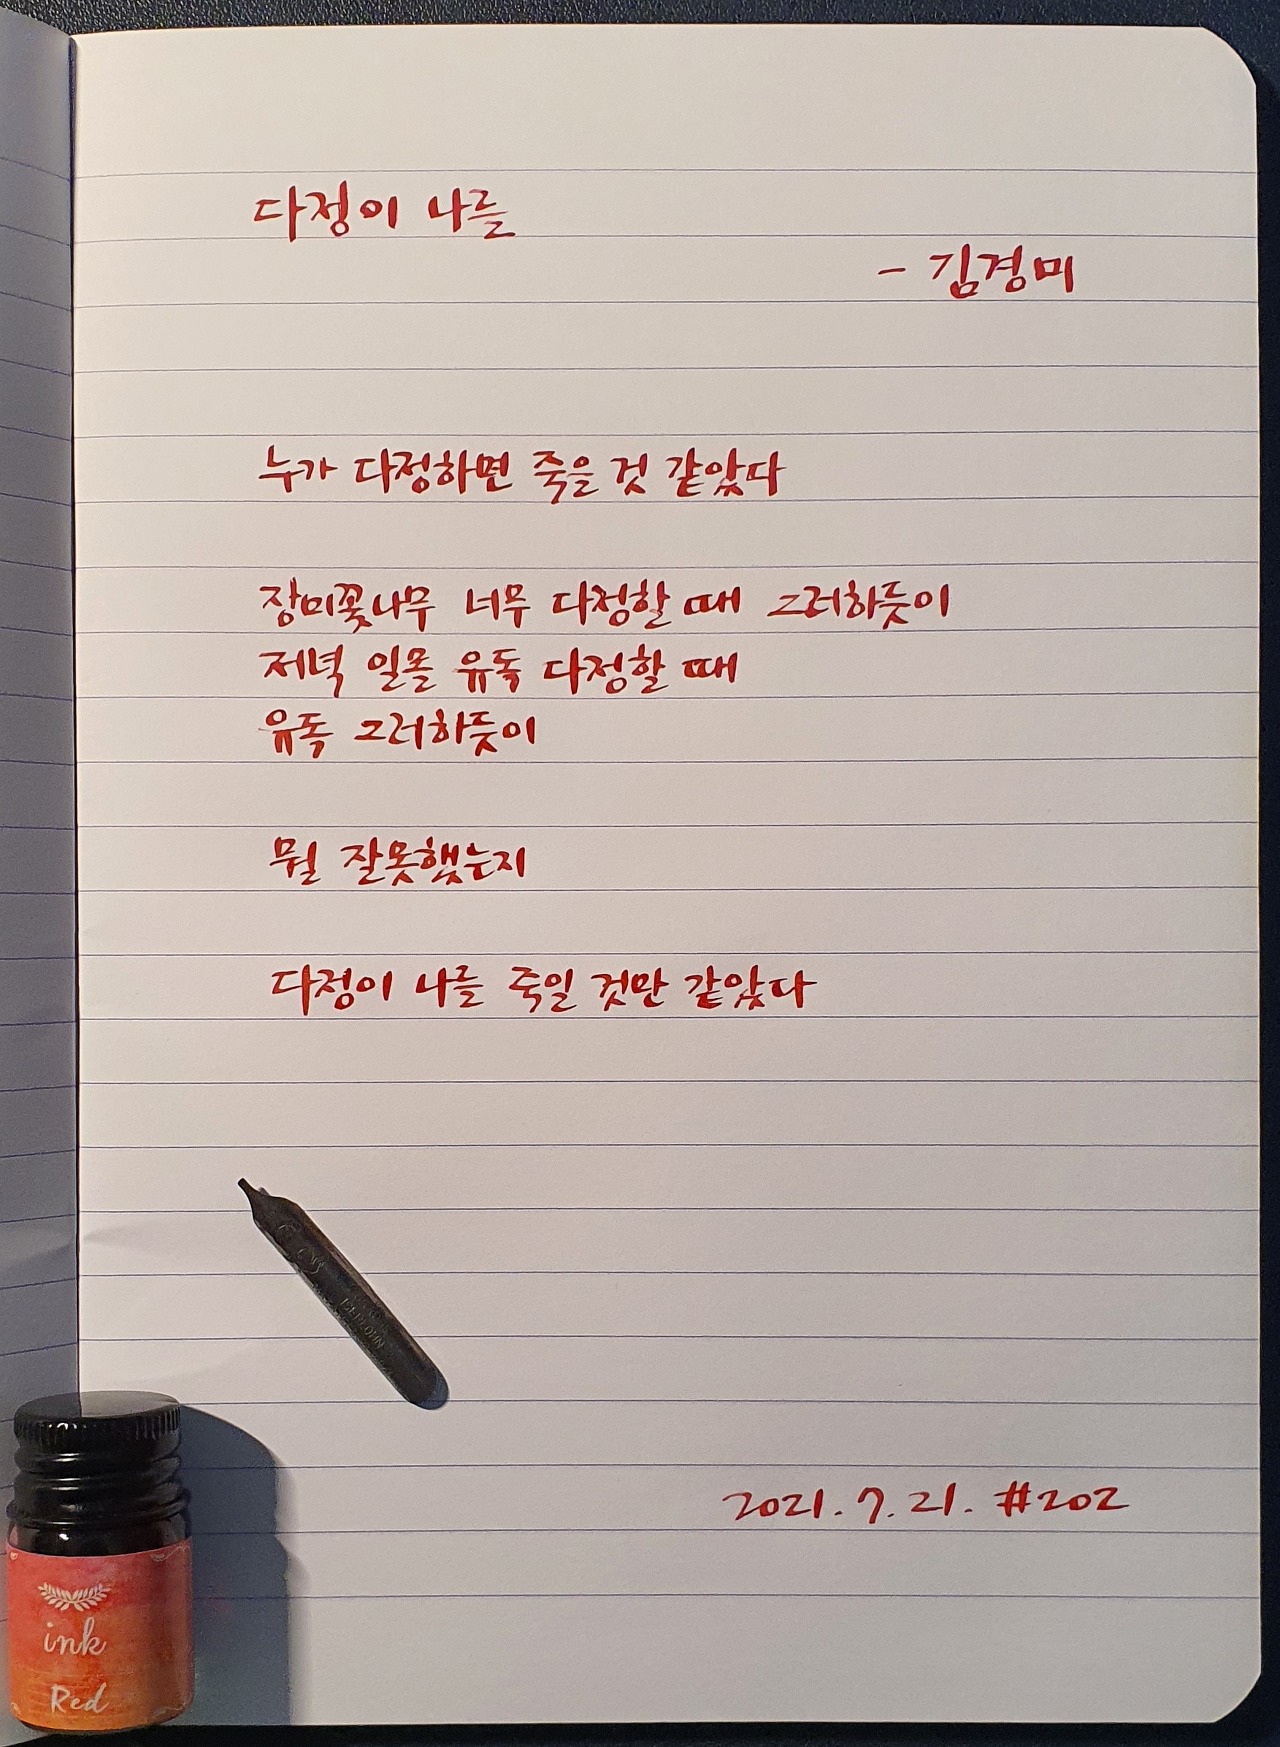 다정이 나를
- 김경미
누가 다정하면 죽을 것 같았다
장미꽃나무 너무 다정할 때 그러하듯이
저녁 일몰 유독 다정할 때
유독 그러하듯이
뭘 잘못했는지
다정이 나를 죽일 것만 같았다
2021.7.21. #202
ink
Red